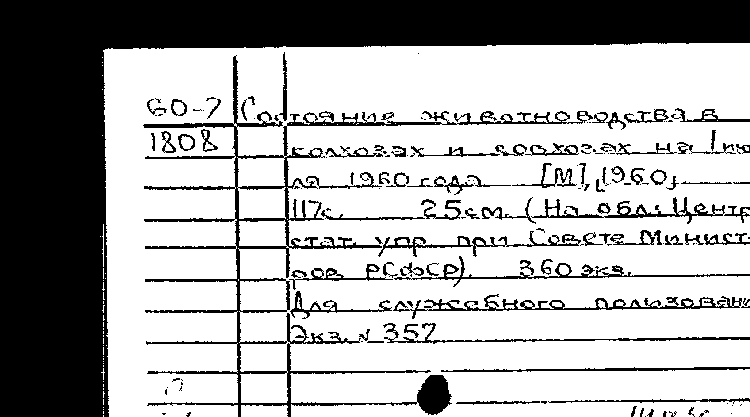 60-7 Состояние животноводства в
1808 колхозах и совхозах на 1 ию
ля 1960 года [М], 1960,
117с. 25см. (На обл: Центр
стат. упр при Совете Минист
ров РСФСР). 360 экз.
Для служебного пользован
Экз. № 357